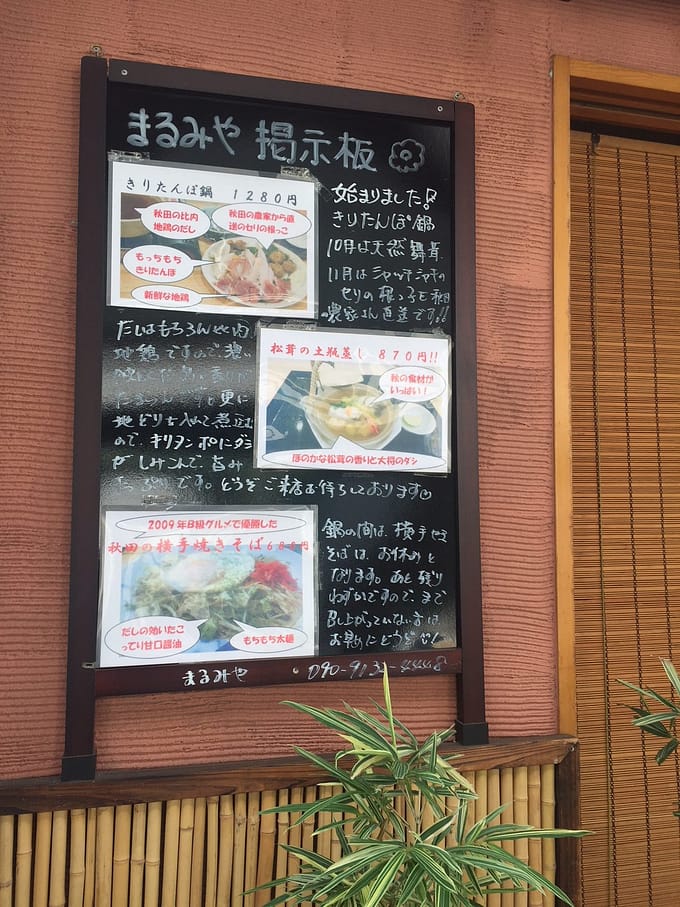 まるみや 掲示板
きりたんぽ鍋 1280円
秋田の比内
地鶏のだし
秋田の農家から直
送のセリの根っこ
もっちもち
きりたんぽ
新鮮な地鶏
始まりました!
きりたんぽ鍋
10月は天然舞茸
11月はシャッキシャキの
セリの根っ子を秋田
農家さん直送です!!
だしはもちろん比内
地鶏ですので、濃い
更に
地どりを入れて煮込む
ので、キリタンポにダシ
がしみこんで、旨み
たっぷりです。どうぞご来店お待ちしております
松茸の土瓶蒸し 870円!!
秋の食材が
いっぱい!
ほのかな松茸の香りと大将のダシ
2009年B級グルメで優勝した
秋田の横手焼きそば680円
だしの効いたこ
ってり甘口醤油
もちもち太麺
鍋の間は、横手やき
そばは、お休みと
なります。あと残り
わずかですので、まだ
召し上がっていない方は
お早めにどうぞ
まるみや 090-9133-4448